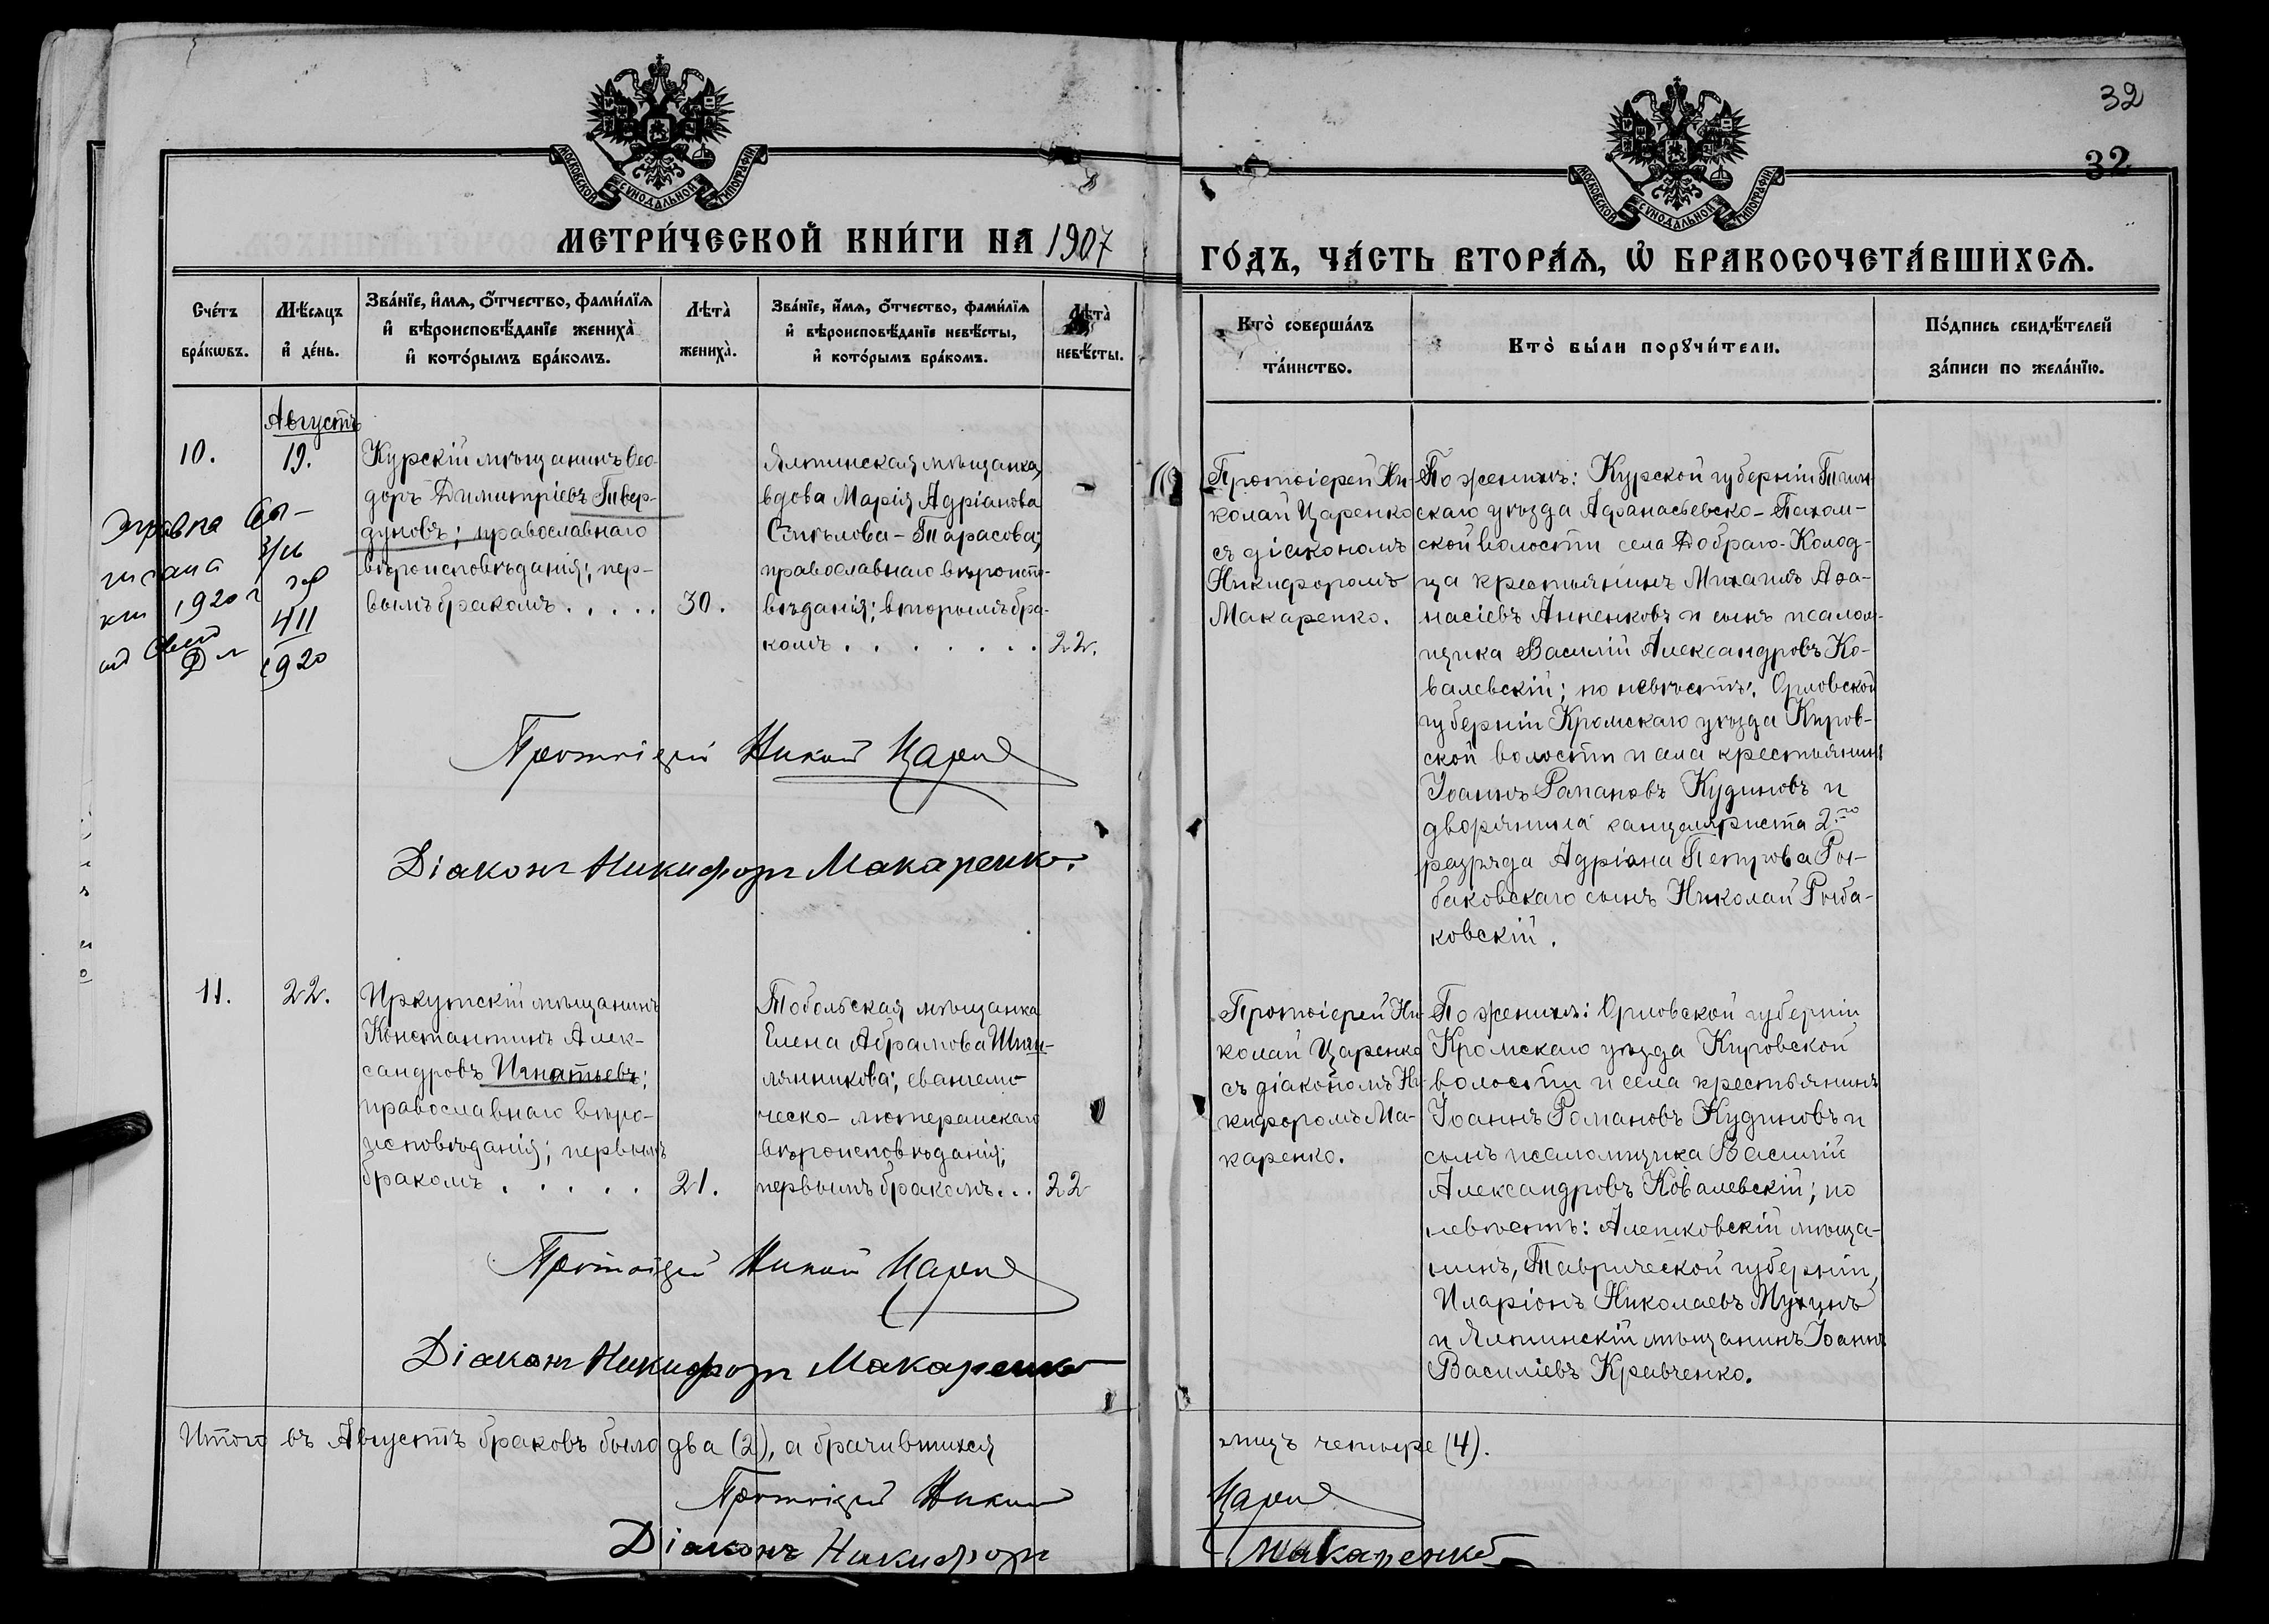 32
32
МОСКОВСКОЙ СѴНОДАЛЬНОЙ ТИПОГРАФІИ
МОСКОВСКОЙ СѴНОДАЛЬНОЙ ТИПОГРАФІИ
МЕТРИ́ЧЕСКОЙ КНИ́ГИ НА 1907
ГО́ДЪ, ЧА́СТЬ ВТОРА́Я, Ѡ҆ БРАКОСОЧЕТА́ВШИХСЯ.
Сче́тъ
бра́кѡвъ.
Мѣ́сяцъ
и҆ де́нь.
Зва́нїе, и҆́мя, ѻ҆́тчество, фами́лїя
и҆ вѣроисповѣ́данїе жениха̀
и҆ кото́рымъ бра́комъ.
Лѣта̀
жениха̀.
Зва́нїе, и҆́мя, ѻ҆́тчество, фами́лїя
и҆ вѣроисповѣ́данїе невѣ́сты,
и҆ кото́рымъ бра́комъ.
Лѣта̀
невѣ́сты.
Кто̀ соверша́лъ
та́инство.
Кто̀ бы́ли порꙋчи́тели.
По́дпись свидѣ́телей
за́писи по жела́нїю.
Августъ
10.
19.
Курскій мѣщанинъ Ѳео-
доръ Димитріевъ Твер-
дуновъ; православнаго
вѣроисповѣданія; пер-
вымъ бракомъ . . . . .
30.
Ялтинская мѣщанка,
вдова Марія Адріанова
Тарасова;
православнаго вѣроиспо-
вѣданія; вторымъ бра-
комъ . . . . . . .
22.
1920 г
411
1920
Протоіерей Николай Царенко
Діаконъ Никифоръ Макаренко.
Протоіерей Ни-
колай Царенко
съ діакономъ
Никифоромъ
Макаренко.
По женихѣ: Курской губерніи Тим-
скаго уѣзда Афанасьевско-Пахом-
ской волости села Добраго-Колод-
ца крестьянинъ Михаилъ Аѳа-
насіевъ Анненковъ и сынъ псалом-
щика Василій Александровъ Ко-
валевскій; по невѣстѣ: Орловской
губерніи Кромскаго уѣзда Киров-
ской волости и села крестьянинъ
Іоаннъ Романовъ Кудиновъ и
дворянина канцеляриста 2го
разряда Адріана Петрова Ры-
баковскаго сынъ Николай Рыба-
ковскій.
11.
22.
Иркутскій мѣщанинъ
Константинъ Алек-
сандровъ Игнатьевъ;
православнаго вѣро-
исповѣданія; первымъ
бракомъ . . . . .
21.
Тобольская мѣщанка
Елена Абрамова
евангели-
ческо-лютеранскаго
вѣроисповѣданія;
первымъ бракомъ...
22
Протоіерей Николай Царенко
Діаконъ Никифоръ Макаренко
Протоіерей Ни-
колай Царенко
съ діакономъ Ни-
кифоромъ Ма-
каренко.
По женихѣ: Орловской губерніи
Кромскаго уѣзда Кировской
волости и села крестьянинъ
Іоаннъ Романовъ Кудиновъ и
сынъ псаломщика Василій
Александровъ Ковалевскій; по
невѣстѣ: Алешковскій мѣща-
нинъ, Таврической губерніи,
Иларіонъ Николаевъ Мухинъ
и Ялтинскій мѣщанинъ Іоаннъ
Василіевъ Кравченко.
Итого въ Августѣ браковъ было два (2), а брачившихся
лицъ четыре (4).
Протоіерей Николай Царенко
Діаконъ Никифоръ Макаренко